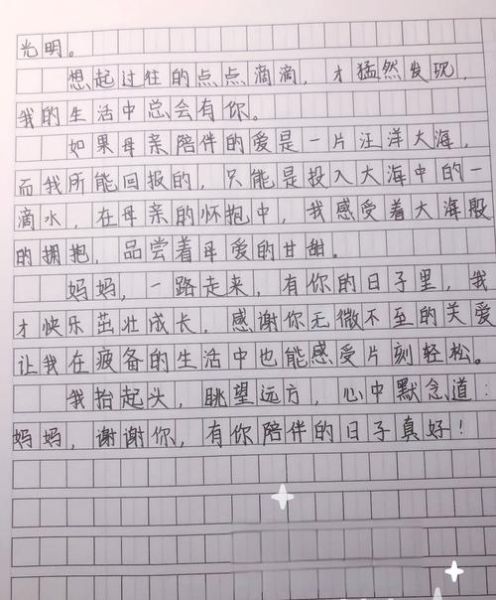 光明。
想起过往的点点滴滴，才猛然发现，
我的生活中总会有你。
如果母亲陪伴的爱是一片汪洋大海，
而我所能回报的，只能是投入大海中的一
滴水，在母亲的怀抱中，我感受着大海般
的拥抱，品尝着母爱的甘甜。
妈妈，一路走来，有你的日子里，我
才快乐茁壮成长，感谢你无微不至的关爱
让我在疲备的生活中也能感受片刻轻松。
我抬起头，眺望远方，心中默念道：
妈妈，谢谢你，有你陪伴的日子真好！